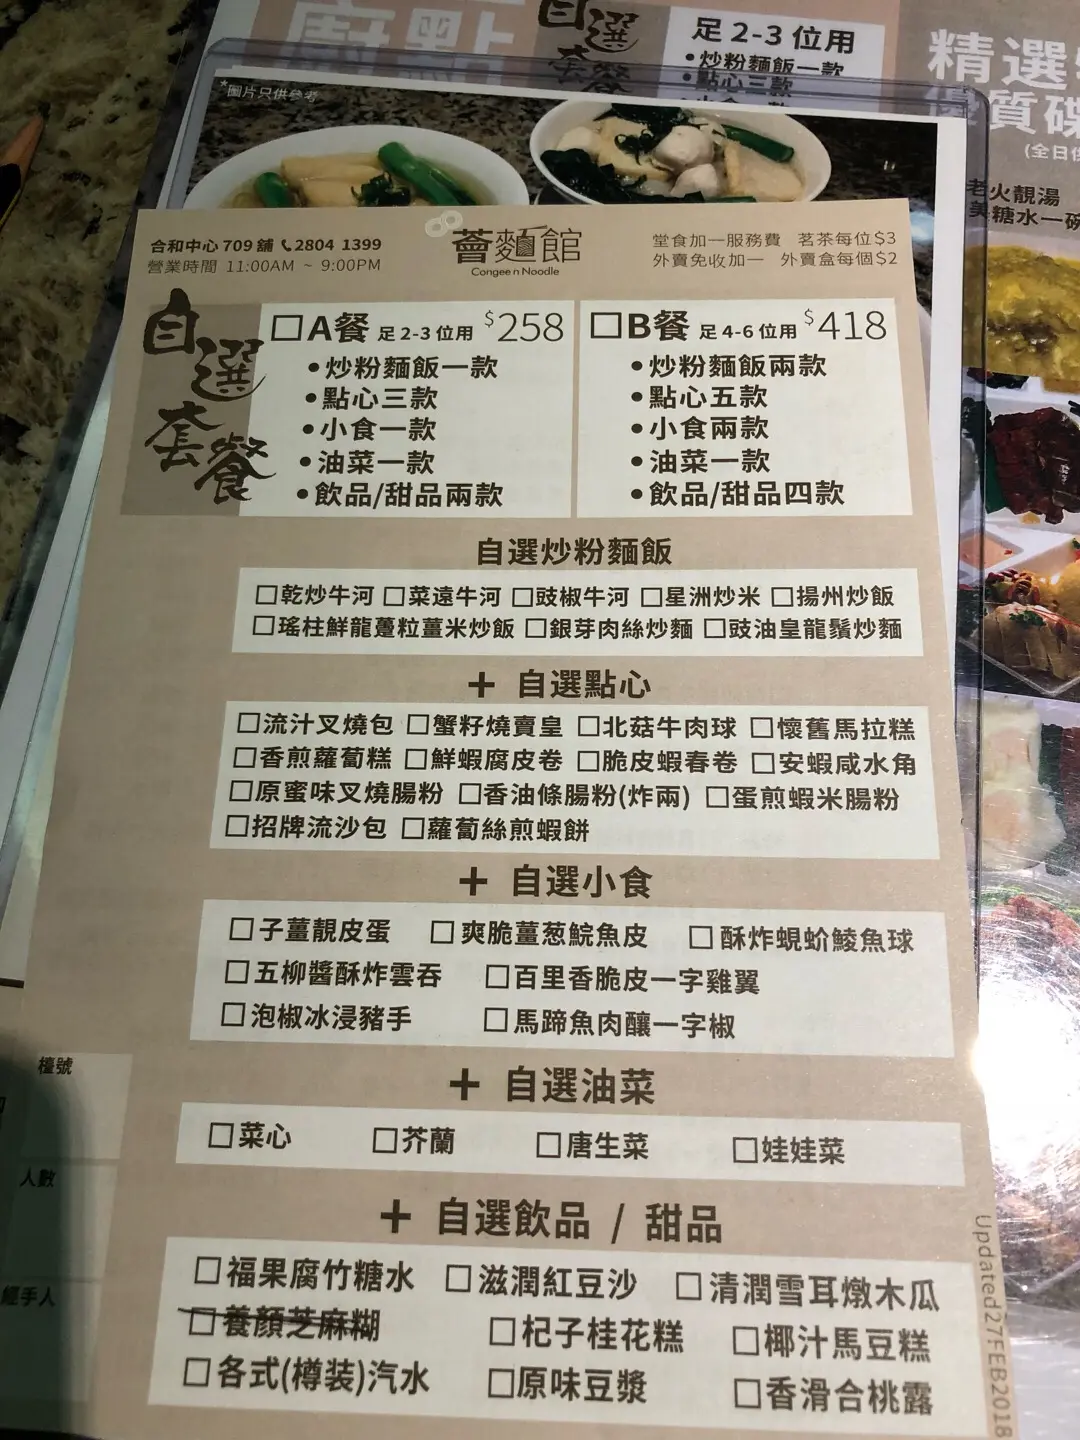 自選
套餐
足 2-3 位用
•炒粉麵飯一款
•點心三款
精選
質碟
老火靚湯
美糖水一碗
*圖片只供參考
合和中心 709 舖 2804 1399
營業時間 11:00AM ~ 9:00PM
薈麵館
Congee n Noodle
堂食加一服務費 茗茶每位$3
外賣免收加一 外賣盒每個$2
自選套餐
□A餐 足 2-3 位用 $258
•炒粉麵飯一款
•點心三款
•小食一款
•油菜一款
•飲品/甜品兩款
□B餐 足 4-6 位用 $418
•炒粉麵飯兩款
•點心五款
•小食兩款
•油菜一款
•飲品/甜品四款
自選炒粉麵飯
□乾炒牛河 □菜遠牛河 □豉椒牛河 □星洲炒米 □揚州炒飯
□瑤柱鮮龍躉粒薑米炒飯 □銀芽肉絲炒麵 □豉油皇龍鬚炒麵
+ 自選點心
□流汁叉燒包 □蟹籽燒賣皇 □北菇牛肉球 □懷舊馬拉糕
□香煎蘿蔔糕 □鮮蝦腐皮卷 □脆皮蝦春卷 □安蝦咸水角
□原蜜味叉燒腸粉 □香油條腸粉(炸兩) □蛋煎蝦米腸粉
□招牌流沙包 □蘿蔔絲煎蝦餅
+ 自選小食
□子薑靚皮蛋 □爽脆薑葱鯇魚皮 □酥炸蜆蚧鯪魚球
□五柳醬酥炸雲吞 □百里香脆皮一字雞翼
□泡椒冰浸豬手 □馬蹄魚肉釀一字椒
+ 自選油菜
□菜心 □芥蘭 □唐生菜 □娃娃菜
+ 自選飲品 / 甜品
□福果腐竹糖水 □滋潤紅豆沙 □清潤雪耳燉木瓜
□養顏芝麻糊 □杞子桂花糕 □椰汁馬豆糕
□各式(樽装)汽水 □原味豆漿 □香滑合桃露
Updated27FEB2018
檯號
人數
經手人